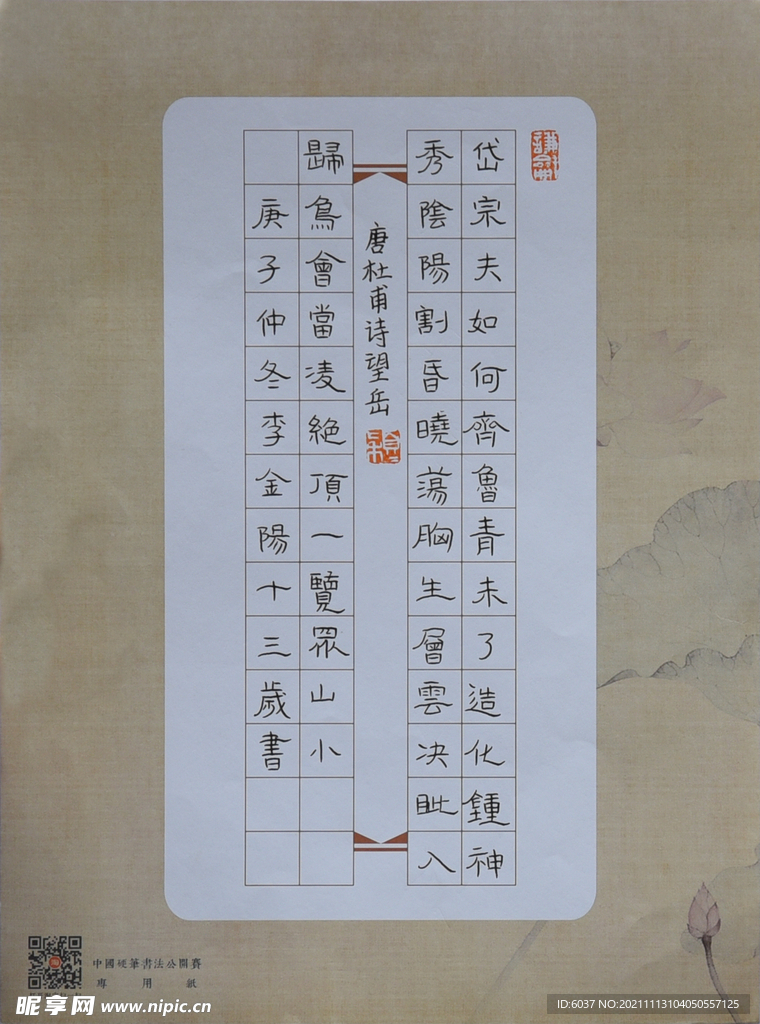 岱宗夫如何齊魯青未了造化鍾神
秀陰陽割昏曉蕩胸生層雲决眦入
唐杜甫诗望岳
歸鳥會當凌絕頂一覽眾山小
庚子仲冬李金陽十三歲書
中國硬筆書法公開賽
專用紙
昵享网 www.nipic.cn
ID:6037 NO:20211113104050557125